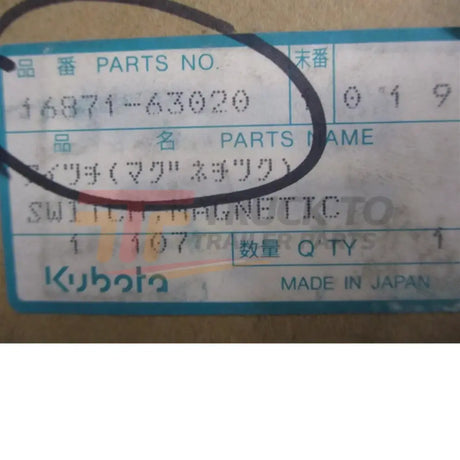 品番 PARTS NO. 末番
16871-63020 1019
品名 PARTS NAME
スイツチ(マグネチツク)
SWITCH,MAGNETIC
1 107 数量 Q'TY 1
Kubota MADE IN JAPAN
TRUCK TO
TRAILER PARTS